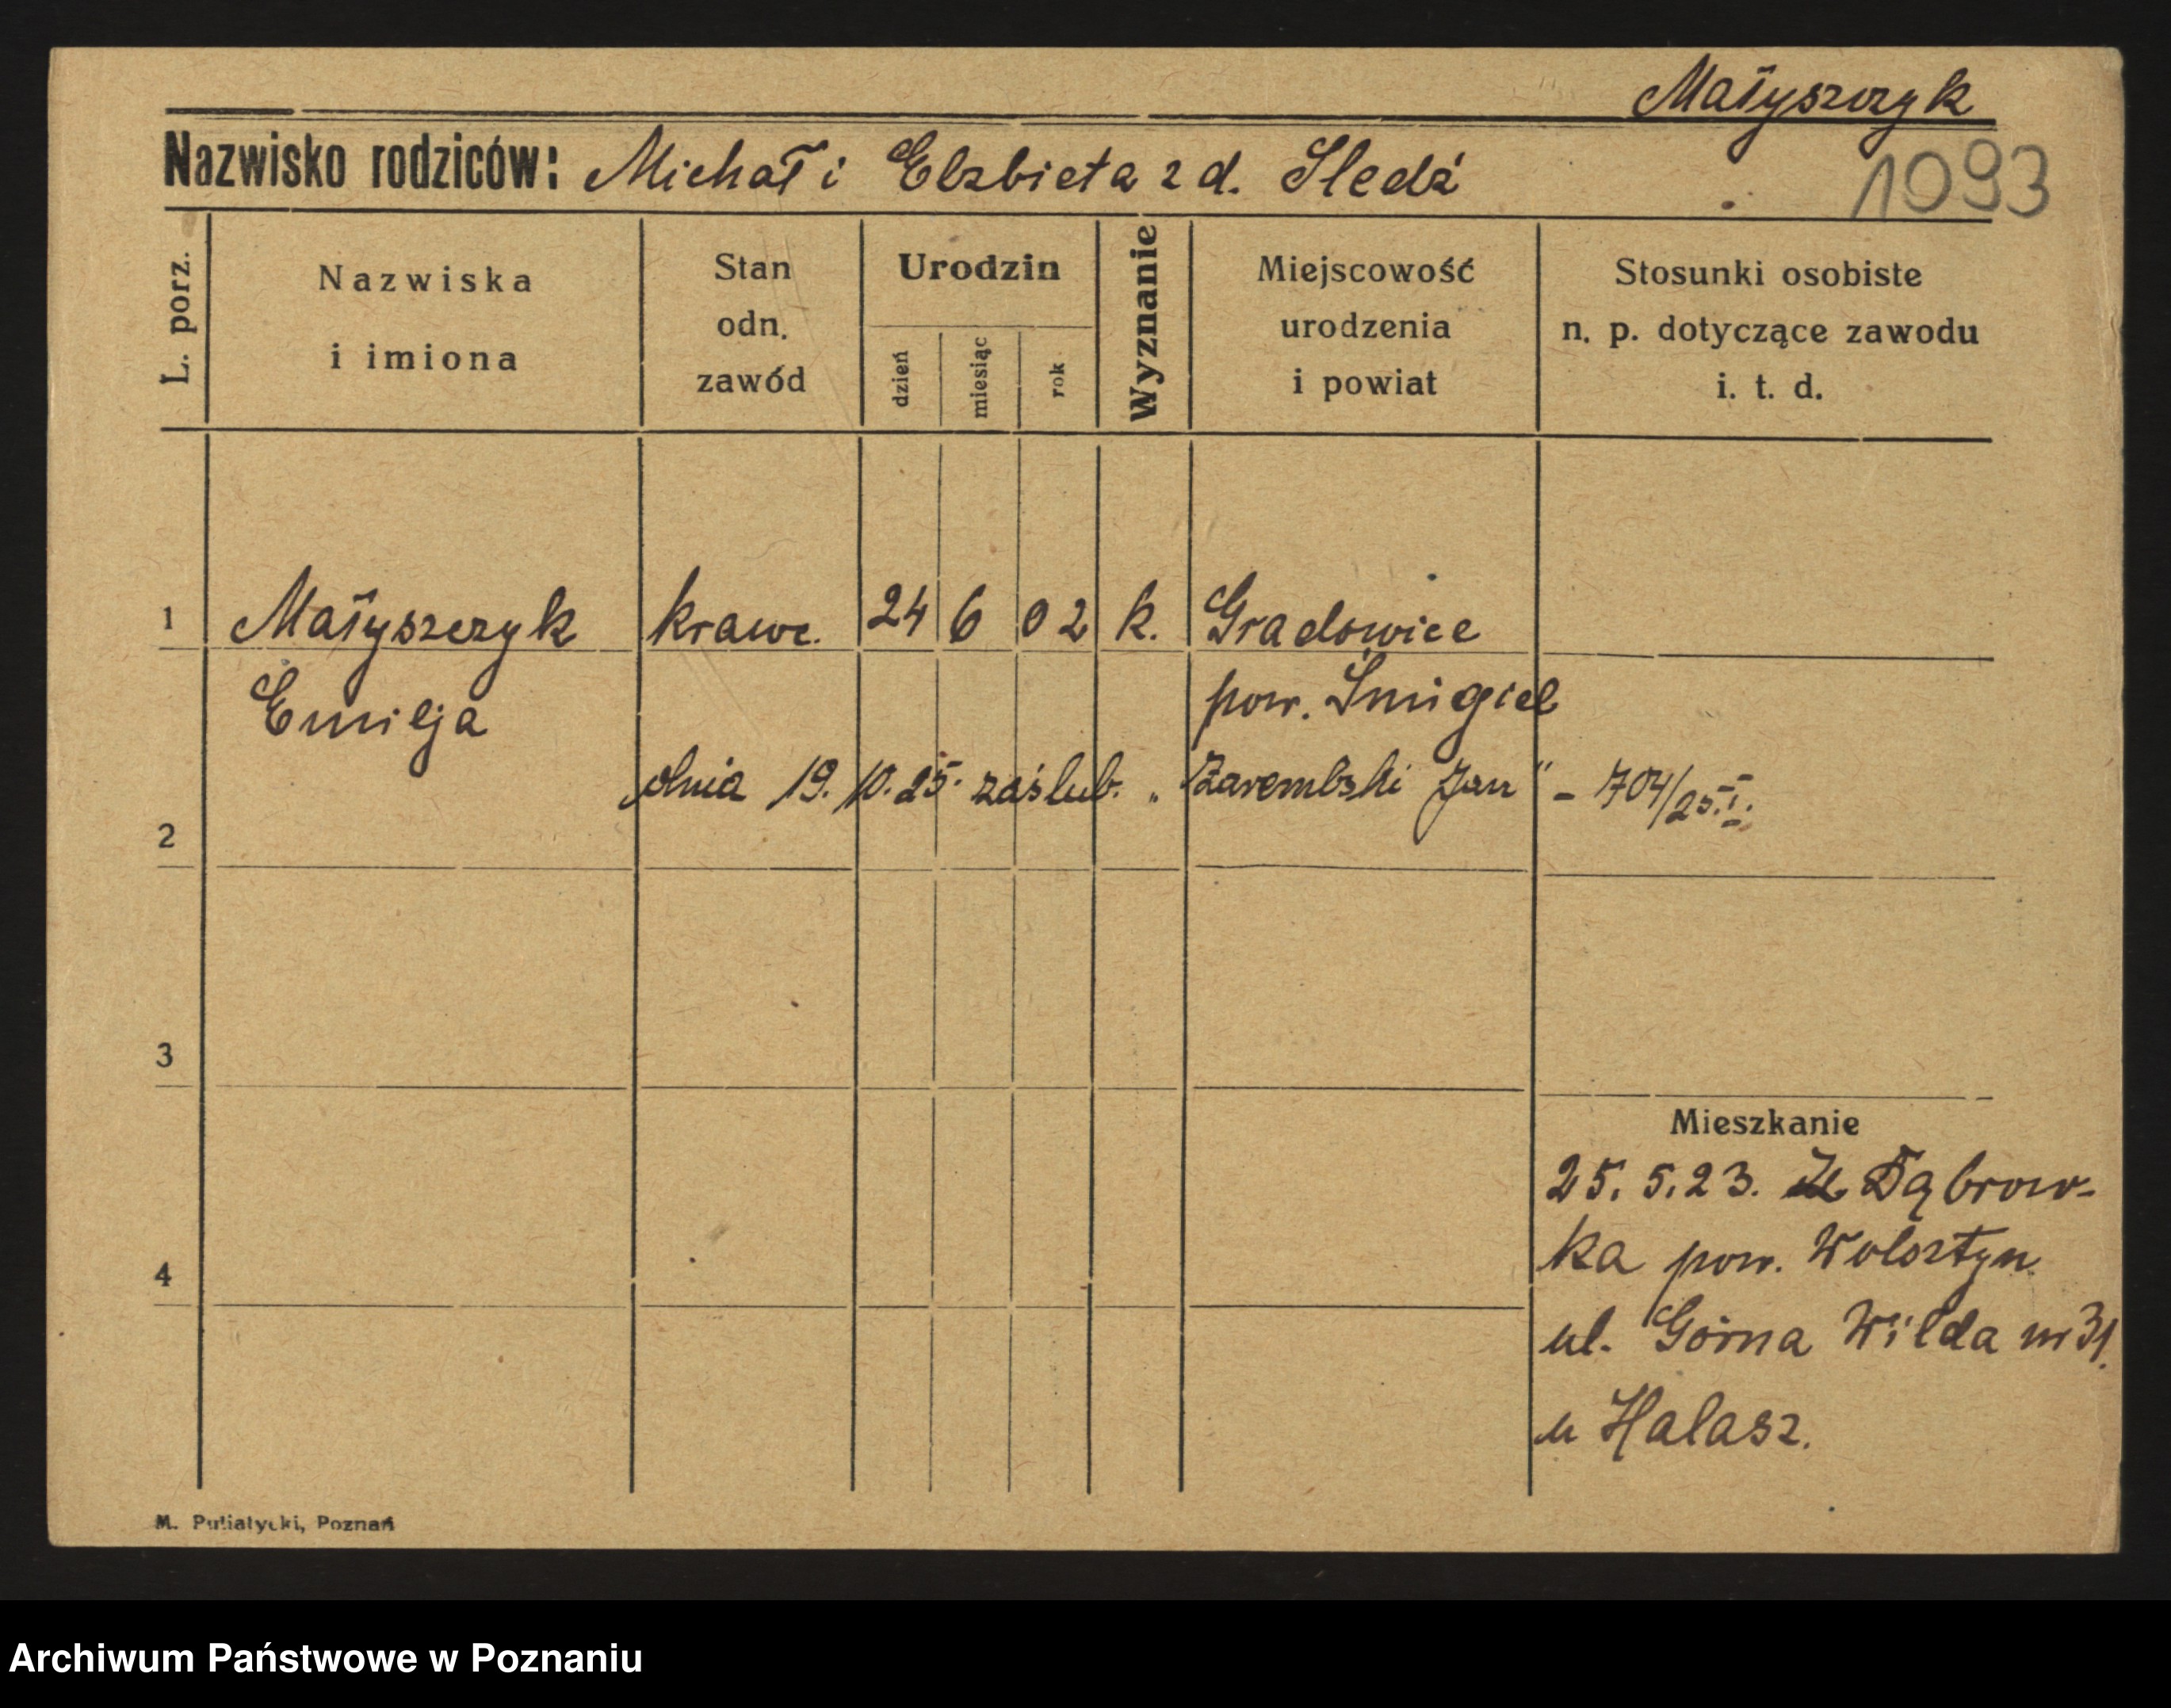 Małyszczyk
Nazwisko rodziców: Michał i Elzbieta z d. Sledź
1093
L. porz.
Nazwiska
i imiona
Stan
odn.
zawód
Urodzin
dzień
miesiąc
rok
Wyznanie
Miejscowość
urodzenia
i powiat
Stosunki osobiste
n. p. dotyczące zawodu
i. t. d.
1 Małyszczyk krawc. 24 6 02 k. Gradowice
Emilja pow. Śmigiel
dnia 19. 10. 25. zaślub. „Zarembski Jan" - 704/25. I.
2
3
Mieszkanie
25. 5. 23. Dąbrow-
ka pow. Wolsztyn
4
ul. Górna Wilda nr 31.
u Halasz.
M. Putiatycki, Poznań
Archiwum Państwowe w Poznaniu